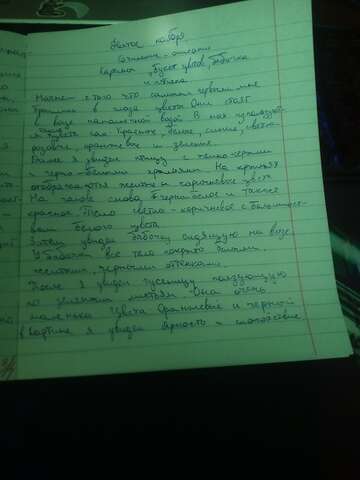 Пятое ноября
Сочинение - описание
Картины „Букет цветов, бабочка
и птичка
Начнем с того что самыми первыми мне
в глаза цветы Они стоят
в вазе наполненной водой В них
я такие как Красные, белые, синие, светло
розовые, оранжевые и зелёные.
Далее я увидел птицу с темно-черными
и черно-белыми крыльями. На крыльях
отображаются желтые и коричневые цвета
На голове снова черный белое и также
красное. Тело светло - коричневое с
белого цвета
Затем увидел бабочку сидящую на вазе
У бабочки все тело покрыто белыми,
желтыми, черными оттенками
После я увидел гусеницу ползующую
по зеленым листьям Она очень
маленькая Цвета Оранжевые и черной
В картине я увидел яркость и спокойствие